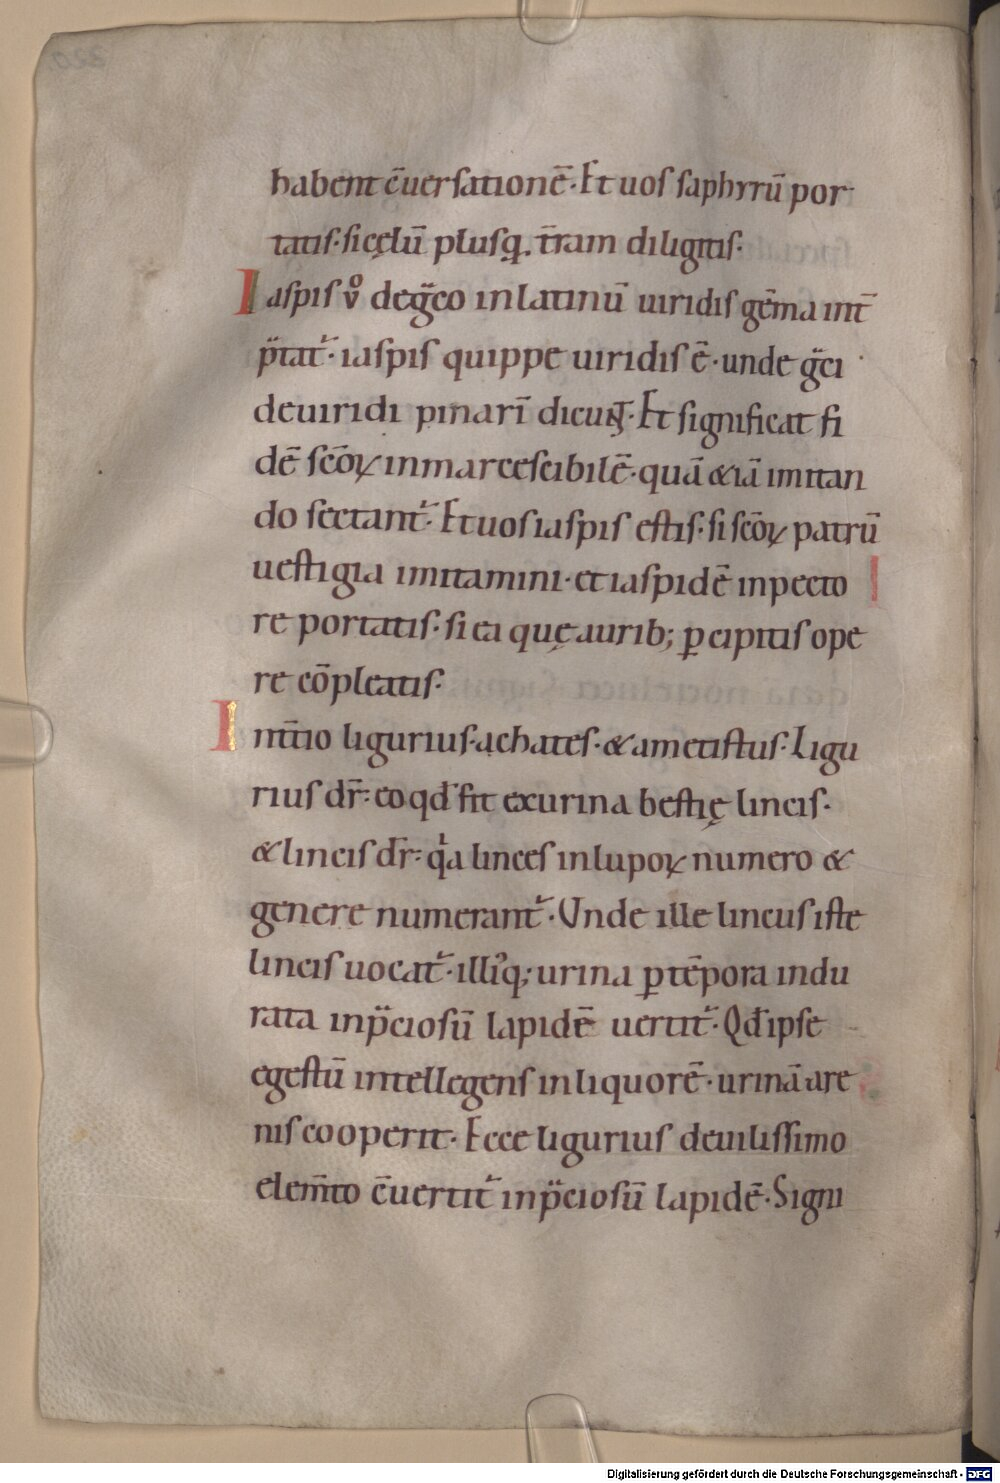 habent c̄uersationē· Et uos saphyrū por
tatis· si cęlū plusq̣. t̄ram diligitis·
Iaspis v̊ degͣco inlatinū uiridis gēma int̄
p̄tatͬ· iaspis quippe uiridis ē· unde gͣci
deuiridi pinarī dicunt̄· Et significat fi
dē scōꝝ inmarcescibilē· quā &iā imitan
do sectantͬ· Et uos iaspis estis· si scōꝝ patrū
uestigia imitamini· et iaspidē inpecto
re portatis· si ea quę aurib; ꝑcipitis ope
re cōpleatis·
Int̄tio ligurius· achates· & ametistus· Ligu
rius dr̄· eo qđ fit exurina bestię lincis·
& lincis dr̄· qͥa linces inlupoꝝ numero &
genere numerantͬ· Unde ille lincus iste
lincis uocatͬ· illiꝰq; urina ꝑ tēpora indu
rata inp̄ciosū lapidē uertitͬ· Qđ ipse
egestū intellegens inliquorē· urinā are
nis cooperit· Ecce ligurius deuilissimo
elem̄to c̄uertitͬ inp̄ciosū lapidē· Signi
Digitalisierung gefördert durch die Deutsche Forschungsgemeinschaft - DFG